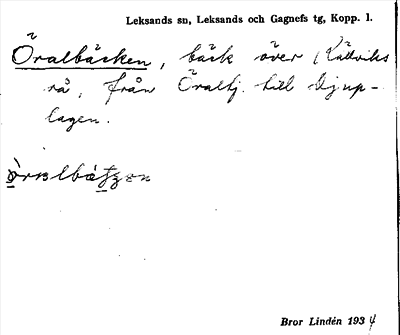 Leksands sn, Leksands och Gagnefs tg, Kopp. l.
Öralbäcken, bäck över (Rättviks
rå, från Öraltj. till Djup-
lagen.
Bror Lindén 1934